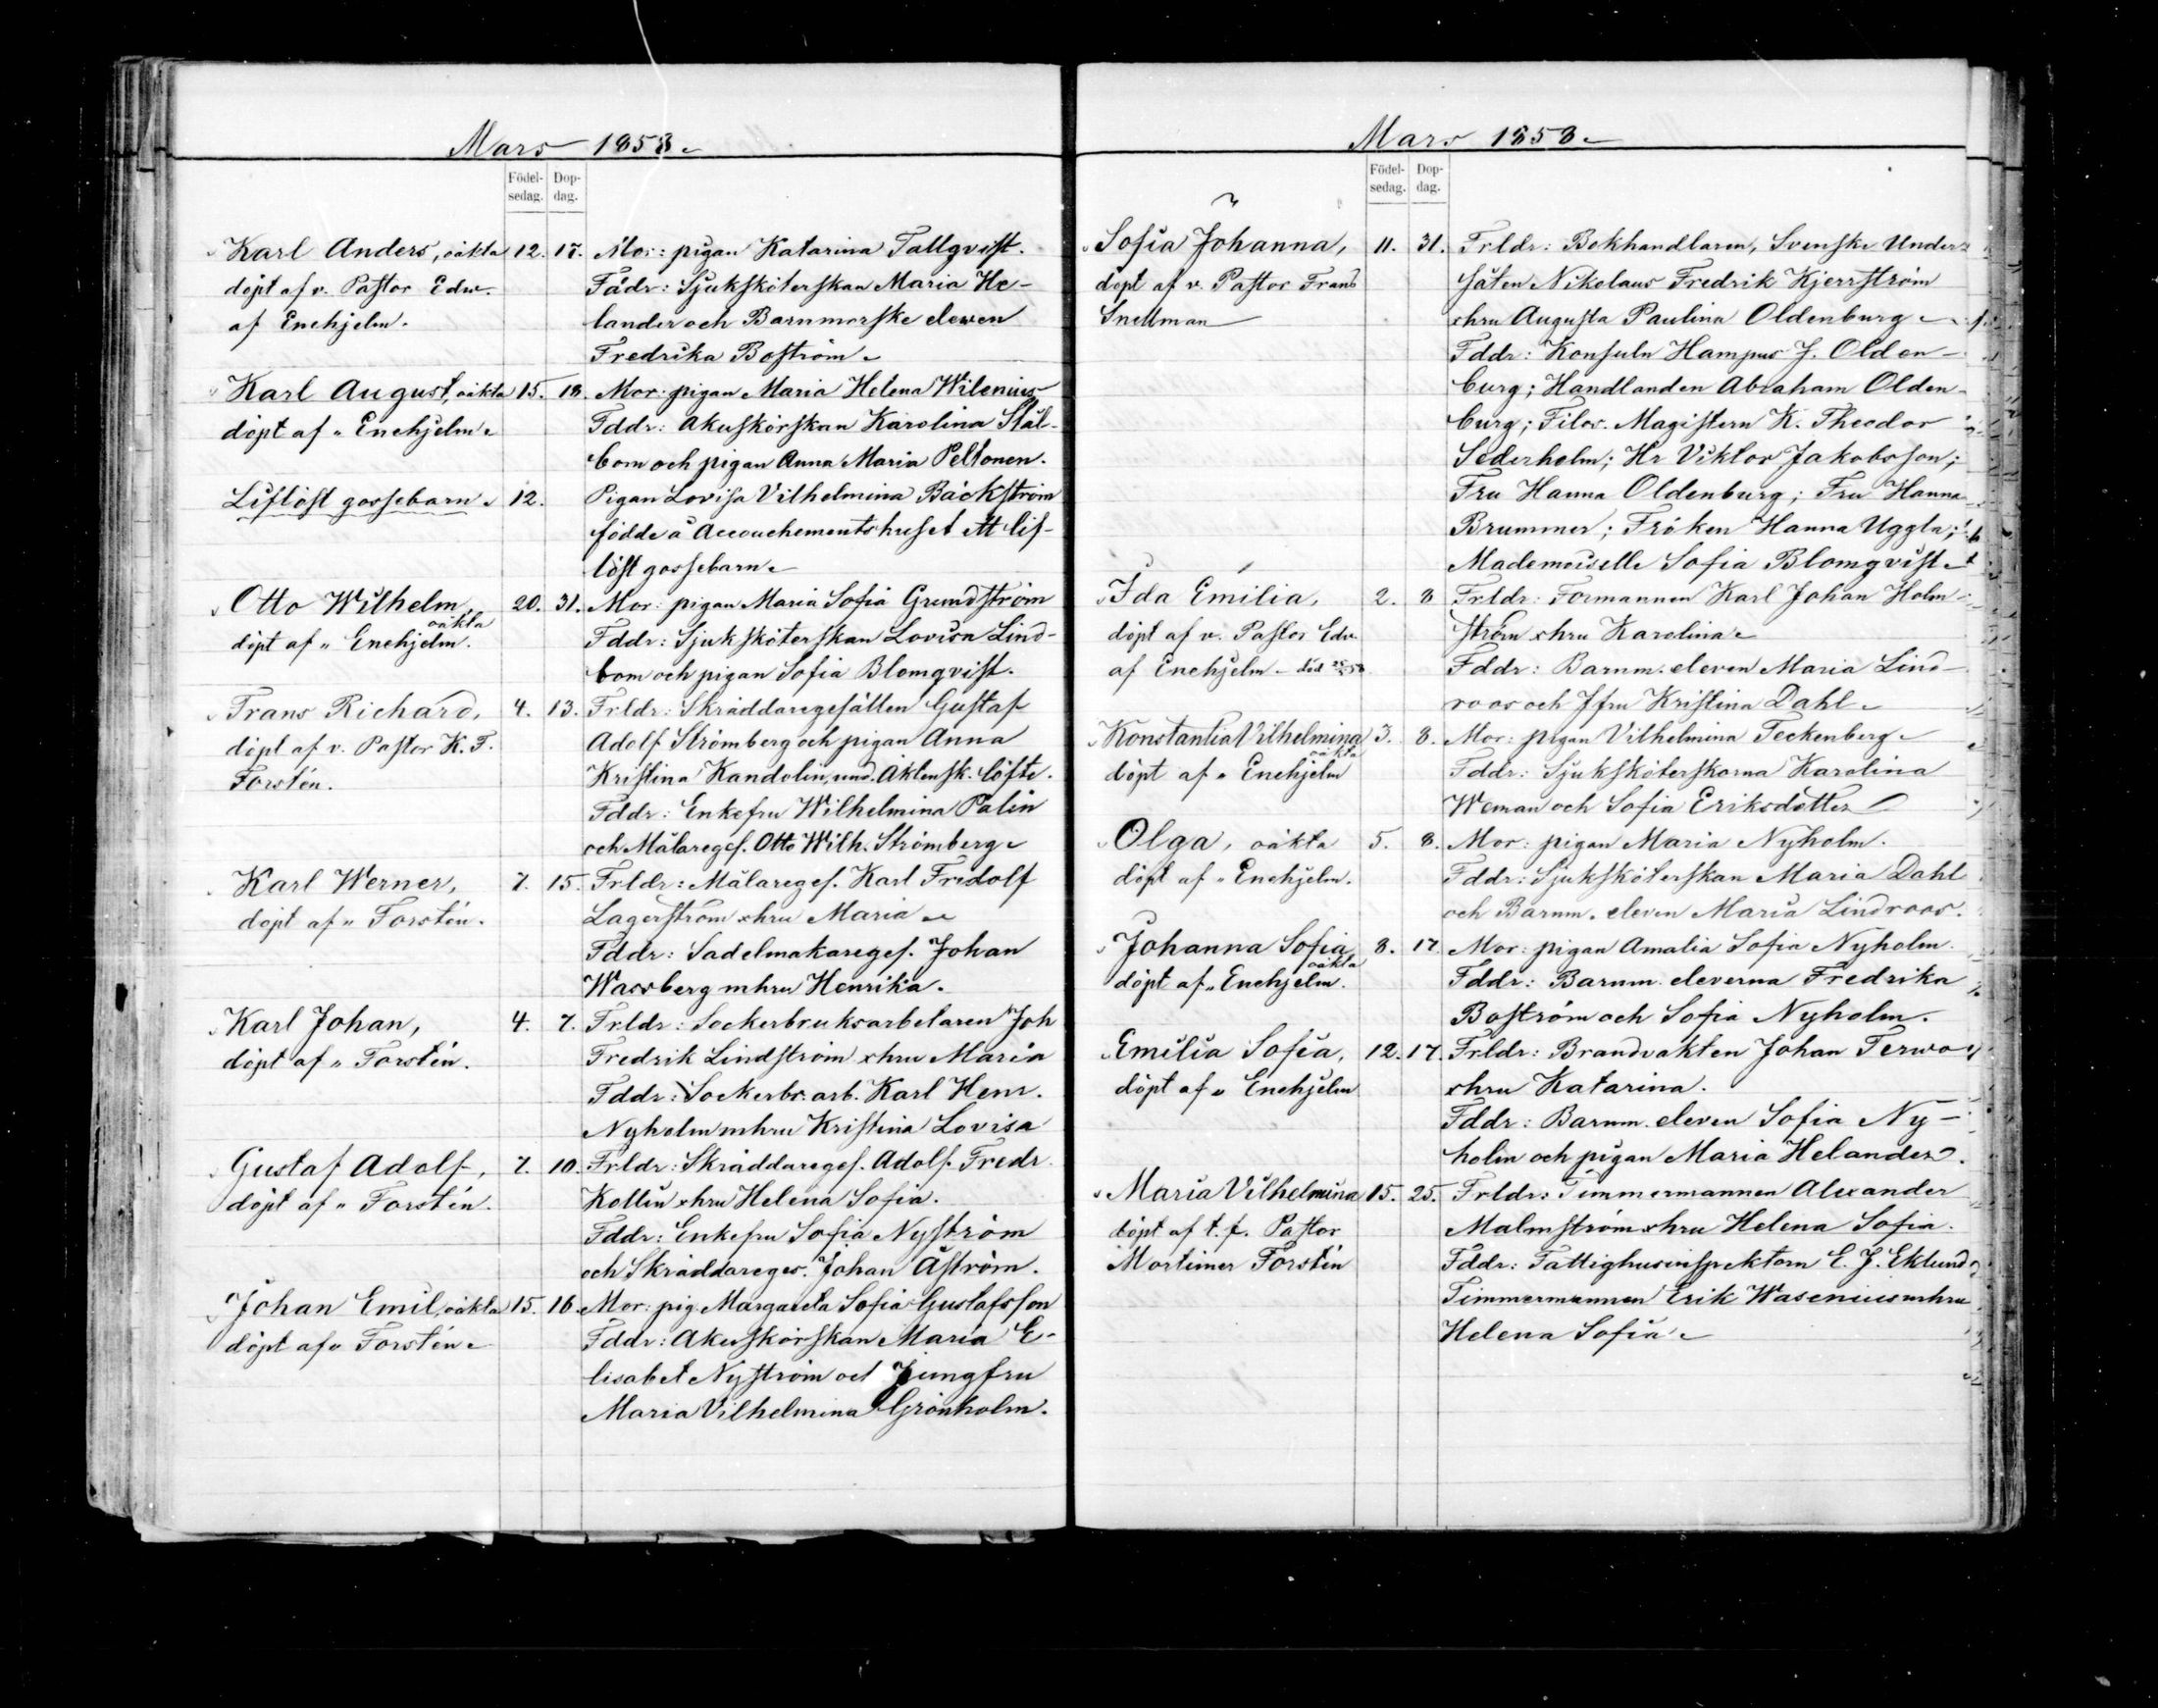 Mars 1858
Födel-
sedag.
Dop-
dag.
Karl Anders, oäkta 12. 17. Mor: pigan Katarina Tallqvist.
döpt af v. Pastor Edw. Fadr: Sjuksköterskan Maria He-
af Enehjelm. lander och Barnmorske eleven
Fredrika Boström
Karl August, oäkta 15. 18. Mor: pigan Maria Helena Wilenius
döpt af " Enehjelm Fddr: Akuskörskan Karolina Stål-
bom och pigan Anna Maria Peltonen.
Liflöst gossebarn 12. Pigan Lovisa Vilhelmina Bäckström
födde å Accouchementshuset ett lif-
löst gossebarn
Otto Wilhelm, oäkta 20. 31. Mor: pigan Maria Sofia Grundström
döpt af " Enehjelm. Fddr: Sjuksköterskan Lovisa Lind-
bom och pigan Sofia Blomqvist.
Frans Richard, 4. 13. Frldr: Skräddaregesällen Gustaf
döpt af v. Pastor K. F. Adolf Strömberg och pigan Anna
Forstén. Kristina Kandolin, und. Äktensk. löfte.
Fddr: Enkefru Wilhelmina Palin
och Målareges. Otto Wilh. Strömberg
Karl Werner, 7. 15. Frldr: Målareges. Karl Fridolf
döpt af " Forstén. Lagerström o hru Maria
Fddr: Sadelmakareges. Johan
Wassberg m hru Henrika.
Karl Johan, 4. 7. Frldr: Sockerbruksarbetaren Joh
döpt af " Forstén. Fredrik Lindström o hru Maria
Fddr: Sockerbr. arb. Karl Henr.
Nyholm m hru Kristina Lovisa
Gustaf Adolf, 7. 10. Frldr: Skräddareges. Adolf Fredr.
döpt af " Forstén. Kollin o hru Helena Sofia.
Fddr: Enkefru Sofia Nyström
och Skräddareges. Johan Åström.
Johan Emil, oäkta 15. 16. Mor: pig. Margareta Sofia Gustafsson
döpt af " Forstén Fddr: Akuskörskan Maria E-
lisabet Nyström och Jungfru
Maria Vilhelmina Grönholm.
Mars 1858
Födel-
sedag.
Dop-
dag.
Sofia Johanna, 11. 31. Frldr: Bokhandlaren, Svenske Under-
döpt af v. Pastor Frans såten Nikolaus Fredrik Kjerrström
Snellman o hru Augusta Paulina Oldenburg
Fddr: Konsuln Hampus J. Olden-
burg; Handlanden Abraham Olden-
burg; Filos. Magistern K. Theodor
Sederholm; Hr Viktor Jakobsson;
Fru Hanna Oldenburg; Fru Hanna
Brummer; Fröken Hanna Uggla;
Mademoiselle Sofia Blomqvist
Ida Emilia, 2. 8 Frldr: Formannen Karl Johan Holm-
döpt af v. Pastor Edv. ström o hru Karolina
af Enehjelm - död Fddr: Barnm. eleven Maria Lind-
roos och Jfru Kristina Dahl
Konstantia Vilhelmina oäkta 3. 8. Mor: pigan Vilhelmina Teckenberg
döpt af " Enehjelm Fddr: Sjuksköterskorna Karolina
Weman och Sofia Eriksdotter
Olga, oäkta 5. 8. Mor: pigan Maria Nyholm.
döpt af " Enehjelm. Fddr: Sjuksköterskan Maria Dahl
och Barnm. eleven Maria Lindroos.
Johanna Sofia oäkta 8. 17. Mor: pigan Amalia Sofia Nyholm.
döpt af " Enehjelm. Fddr: Barnm. eleverna Fredrika
Boström och Sofia Nyholm.
Emilia Sofia, 12. 17. Frldr: Brandvakten Johan Terwo
döpt af " Enehjelm o hru Katarina.
Fddr: Barnm. eleven Sofia Ny-
holm och pigan Maria Helander.
Maria Vilhelmina 15. 25. Frldr: Timmermannen Alexander
döpt af t. f. Pastor Malmström o hru Helena Sofia.
Mortimer Forstén Fddr: Fattighusinspektorn E. J. Eklund
Timmermannen Erik Wasenius m hru
Helena Sofia